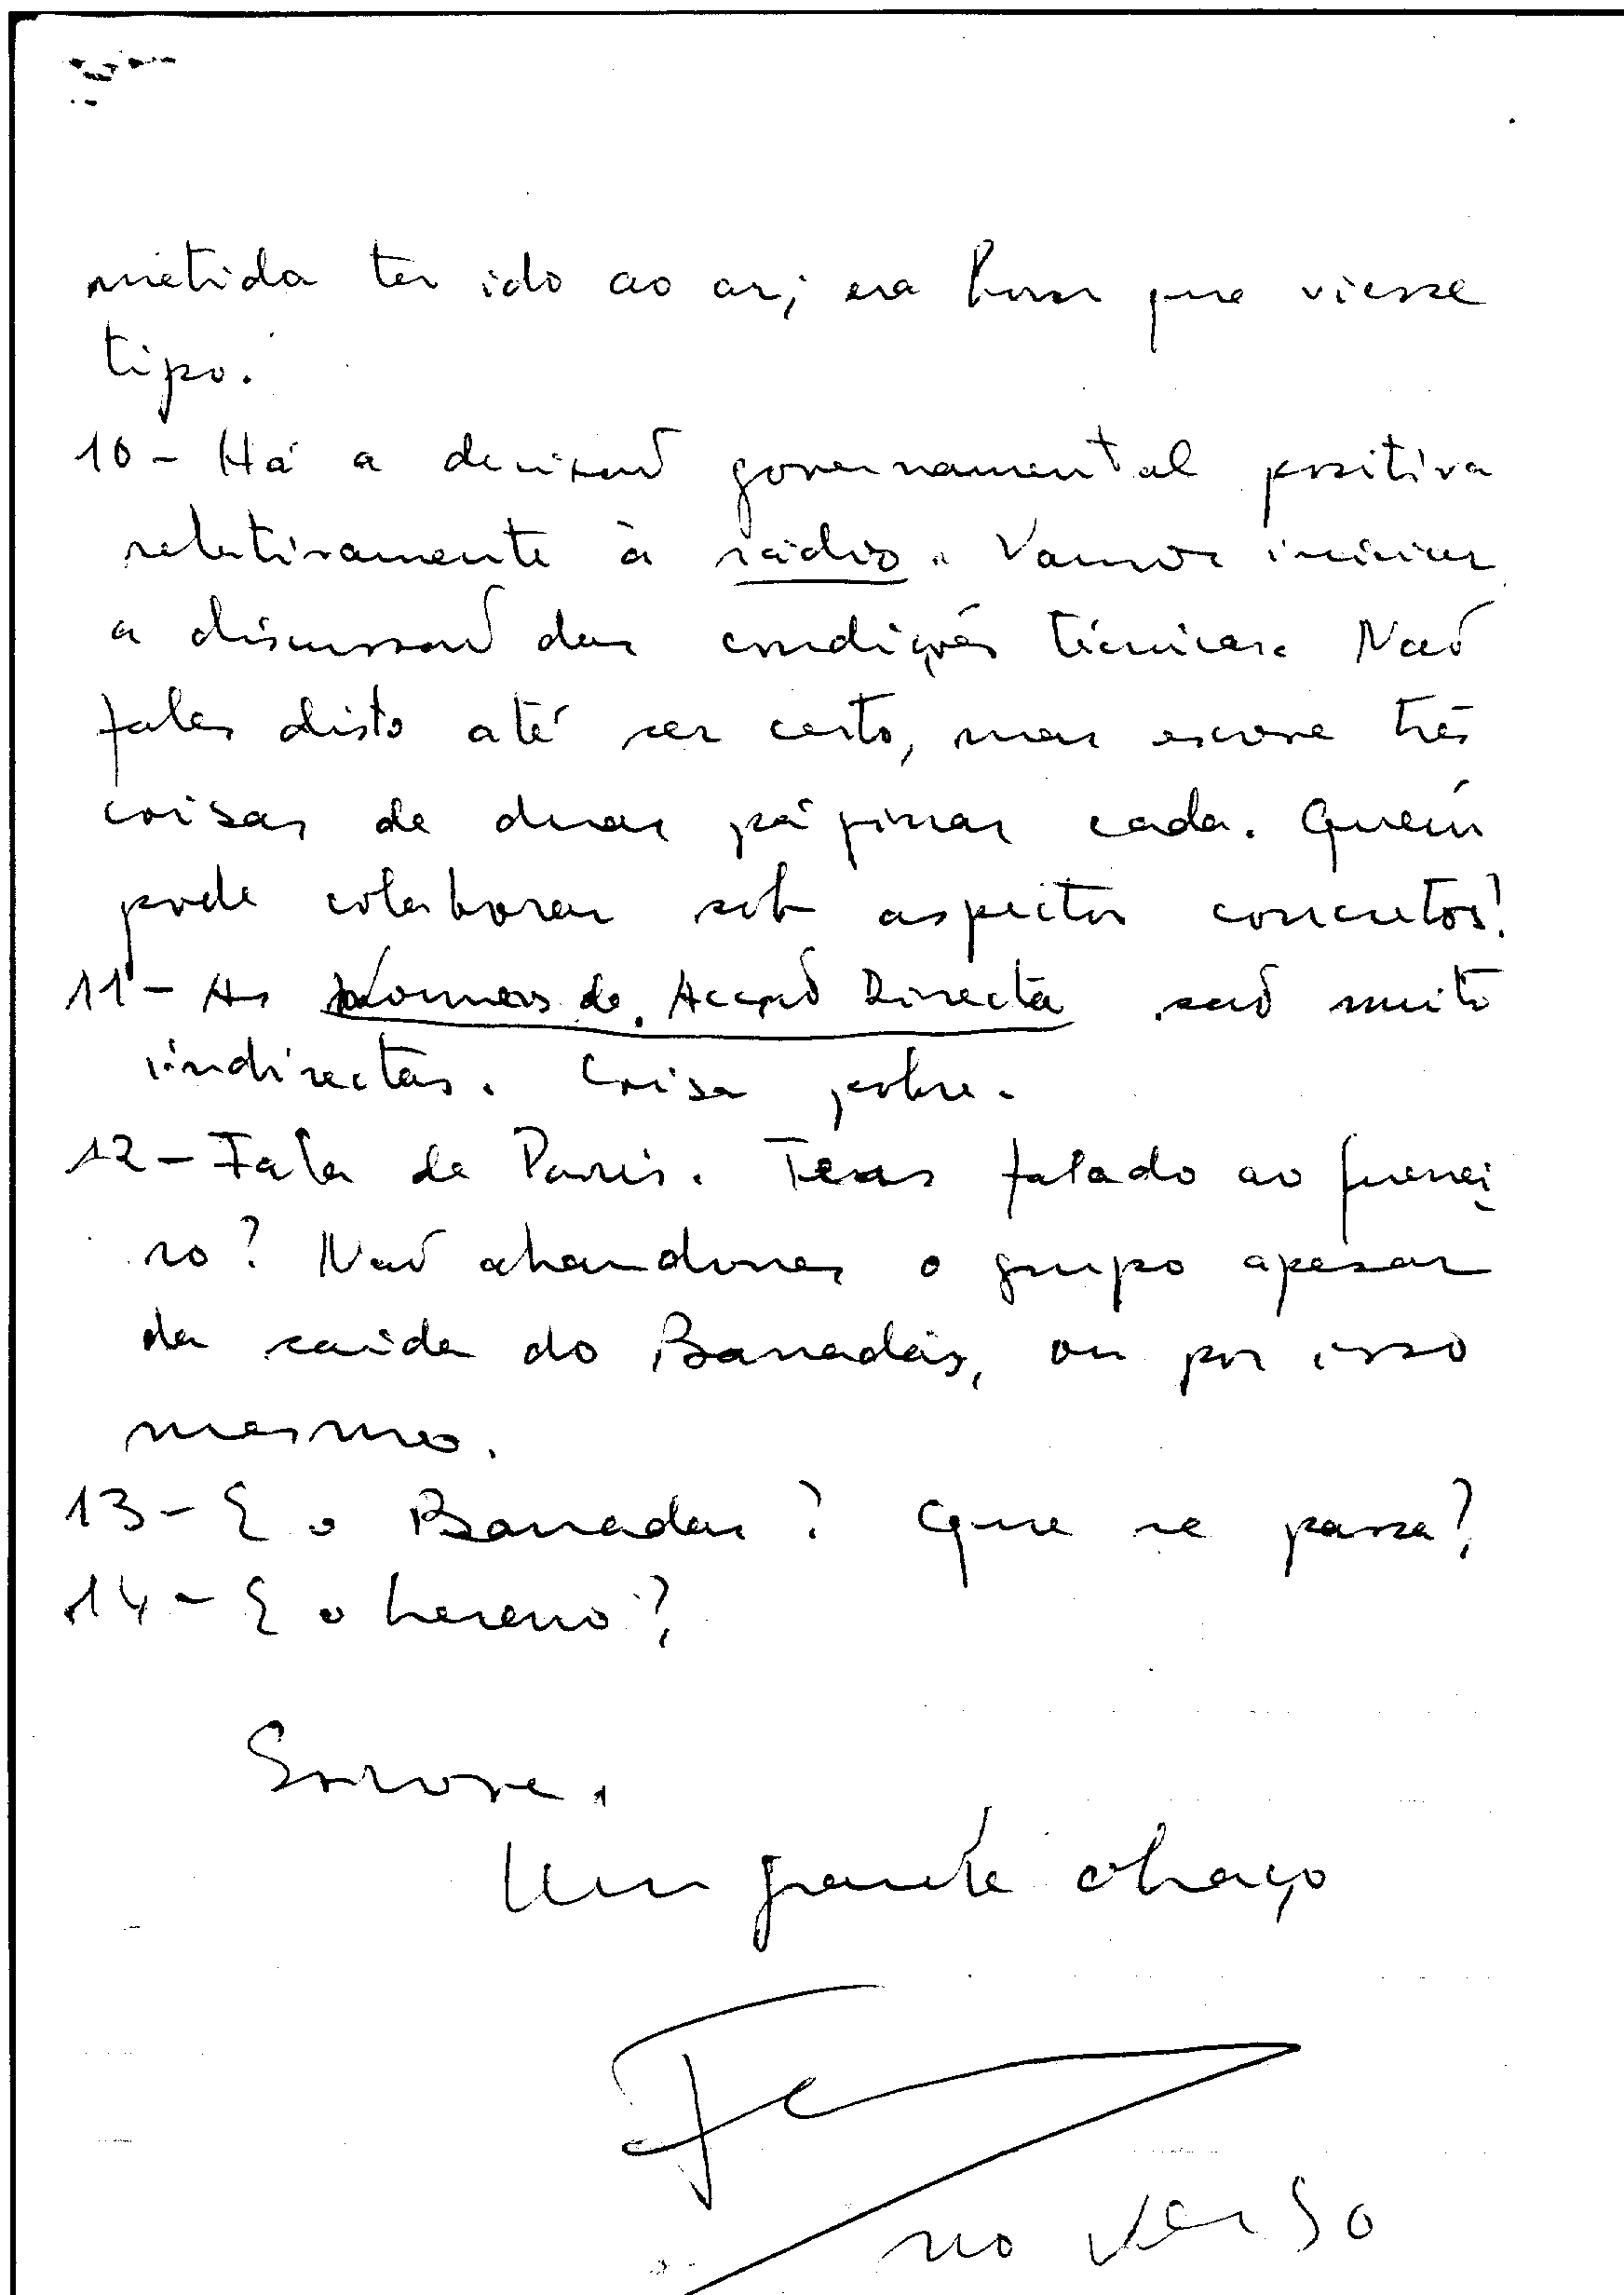 metida ter ido ao ar; era bom que viesse
tipo.
10 - Há a decisão governamental positiva
relativamente à rádio. Vamos iniciar
a discussão das condições técnicas. Não
fales disto até ser certo, mas escreve três
coisas de duas páginas cada. Quem
pode colaborar sob aspectos concretos?
11 - As de Acção Directa são muito
indirectas. Coisa pobre.
12 - Fala de Paris. Teras falado ao
ro? Não abandones o grupo apesar
da saída do Barradas, ou por isso
mesmo.
13 - E o Barradas? Que se passa?
14 - E o
Escreve.
Um grande abraço
no verso